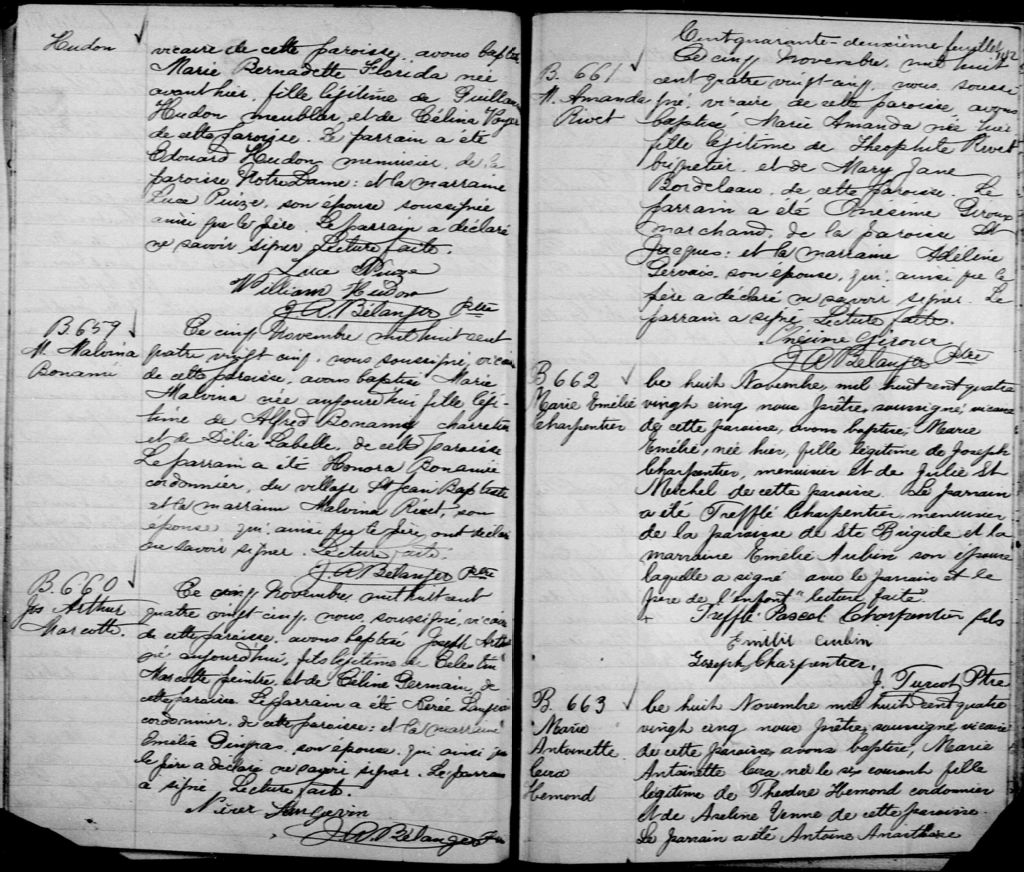 Hudon
vicaire de cette paroisse, avons baptisé
Marie Bernadette Florida née
avant hier, fille légitime de Guillaume
Hudon meublier, et de Célina Voyer
de cette paroisse. Le parrain a été
Edouard Hudon menuisier, de la
paroisse Notre Dame: et la marraine
Luce Piuze, son épouse soussignée
ainsi que le père. Le parrain a déclaré
ne savoir signer. Lecture faite.
Luce Piuze
William Hudon
J. A. Bélanger Ptre
B. 659
M. Malvina
Bonamie
Ce cinq Novembre mil huit cent
quatre vingt cinq, nous soussigné, vicaire
de cette paroisse, avons baptisé Marie
Malvina née aujourd'hui fille légi-
time de Alfred Bonamie charretier
et de Délia Labelle, de cette paroisse
Le parrain a été Honora Bonamie
cordonnier, du village St Jean Baptiste
et la marraine Malvina Rivet, son
épouse, qui ainsi que le père, ont déclaré
ne savoir signer. Lecture faite.
J. A. Bélanger Ptre
B. 660
Jos Arthur
Marcotte.
Ce cinq Novembre mil huit cent
quatre vingt cinq, nous, soussigné, vicaire
de cette paroisse, avons baptisé Joseph Arthur
né aujourd'hui, fils légitime de Célestin
Marcotte peintre, et de Céline Germain, de
cette paroisse. Le parrain a été Nérée Langevin
cordonnier, de cette paroisse: et la marraine
Emélia Gingras, son épouse, qui ainsi que
le père a déclaré ne savoir signer. Le parrain
a signé. Lecture faite.
Nérer Langevin
J. A. Bélanger Ptre
Cent quarante-deuxième feuillet 142
B. 661
M. Amanda
Rivet
Ce cinq Novembre, mil huit
cent quatre vingt cinq, nous, soussi
gné, vicaire de cette paroisse avons
baptisé Marie Amanda née hier
fille légitime de Théophile Rivet
briquetier, et de Mary Jane
Bordeleau, de cette paroisse. Le
parrain a été Onésime Giroux
marchand, de la paroisse St
Jacques: et la marraine Adéline
Gervais, son épouse, qui ainsi que le
père a déclaré ne savoir signer. Le
parrain a signé. Lecture faite.
Onésime Giroux
J. A. Bélanger Ptre
B 662
Marie Emélie
Charpentier
Ce huit Novembre, mil huit cent quatre
vingh cinq nous prêtre, soussigné vicaire
de cette paroisse, avons baptisé, Marie
Emélie, née hier, fille légitime de Joseph
Charpentier, menuisier et de Julie St
Michel de cette paroisse. Le parrain
a été Trefflé Charpentier menuisier
de la paroisse de Ste Brigide et la
marraine Emélie Aubin son épouse
laquelle a signé avec le parrain et le
père de l'enfant. Lecture faite.
Trefflé Pascal Charpentier fils
Emilie Aubin
Joseph Charpentier.
J. Turcot Ptre
B. 663
Marie
Antoinette
Cura
Hemond
Ce huit Novembre mil huit cent quatre
vingt cinq nous prêtre, soussigné vicaire
de cette paroisse, avons baptisé, Marie
Antoinette Cura née le six courant fille
légitime de Théodore Hemond cordonnier
et de Azeline Venne de cette paroisse.
Le parrain a été Antoine Anasthase